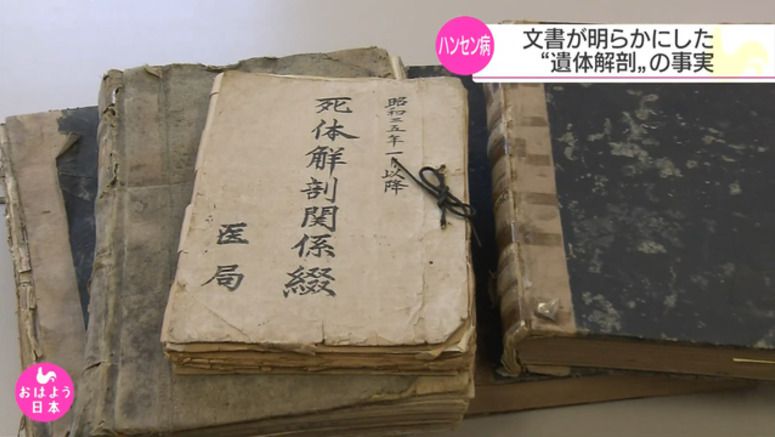 ハンセン病
文書が明らかにした
“遺体解剖„の事実
昭和三五年一月以降
死体解剖関係綴
医局
おはよう
日本